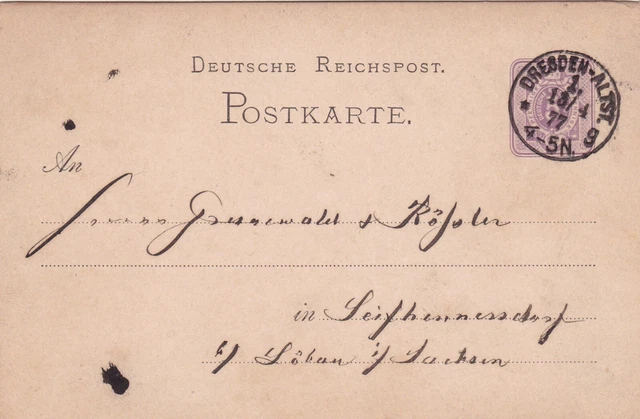 DEUTSCHE REICHSPOST.
POSTKARTE.
DRESDEN-ALTST.
1.
13/4
77
4-5N.
* 9
An
Herren Grunewald & Rößler
in Seifhennersdorf
b/ Löbau i/ Sachsen